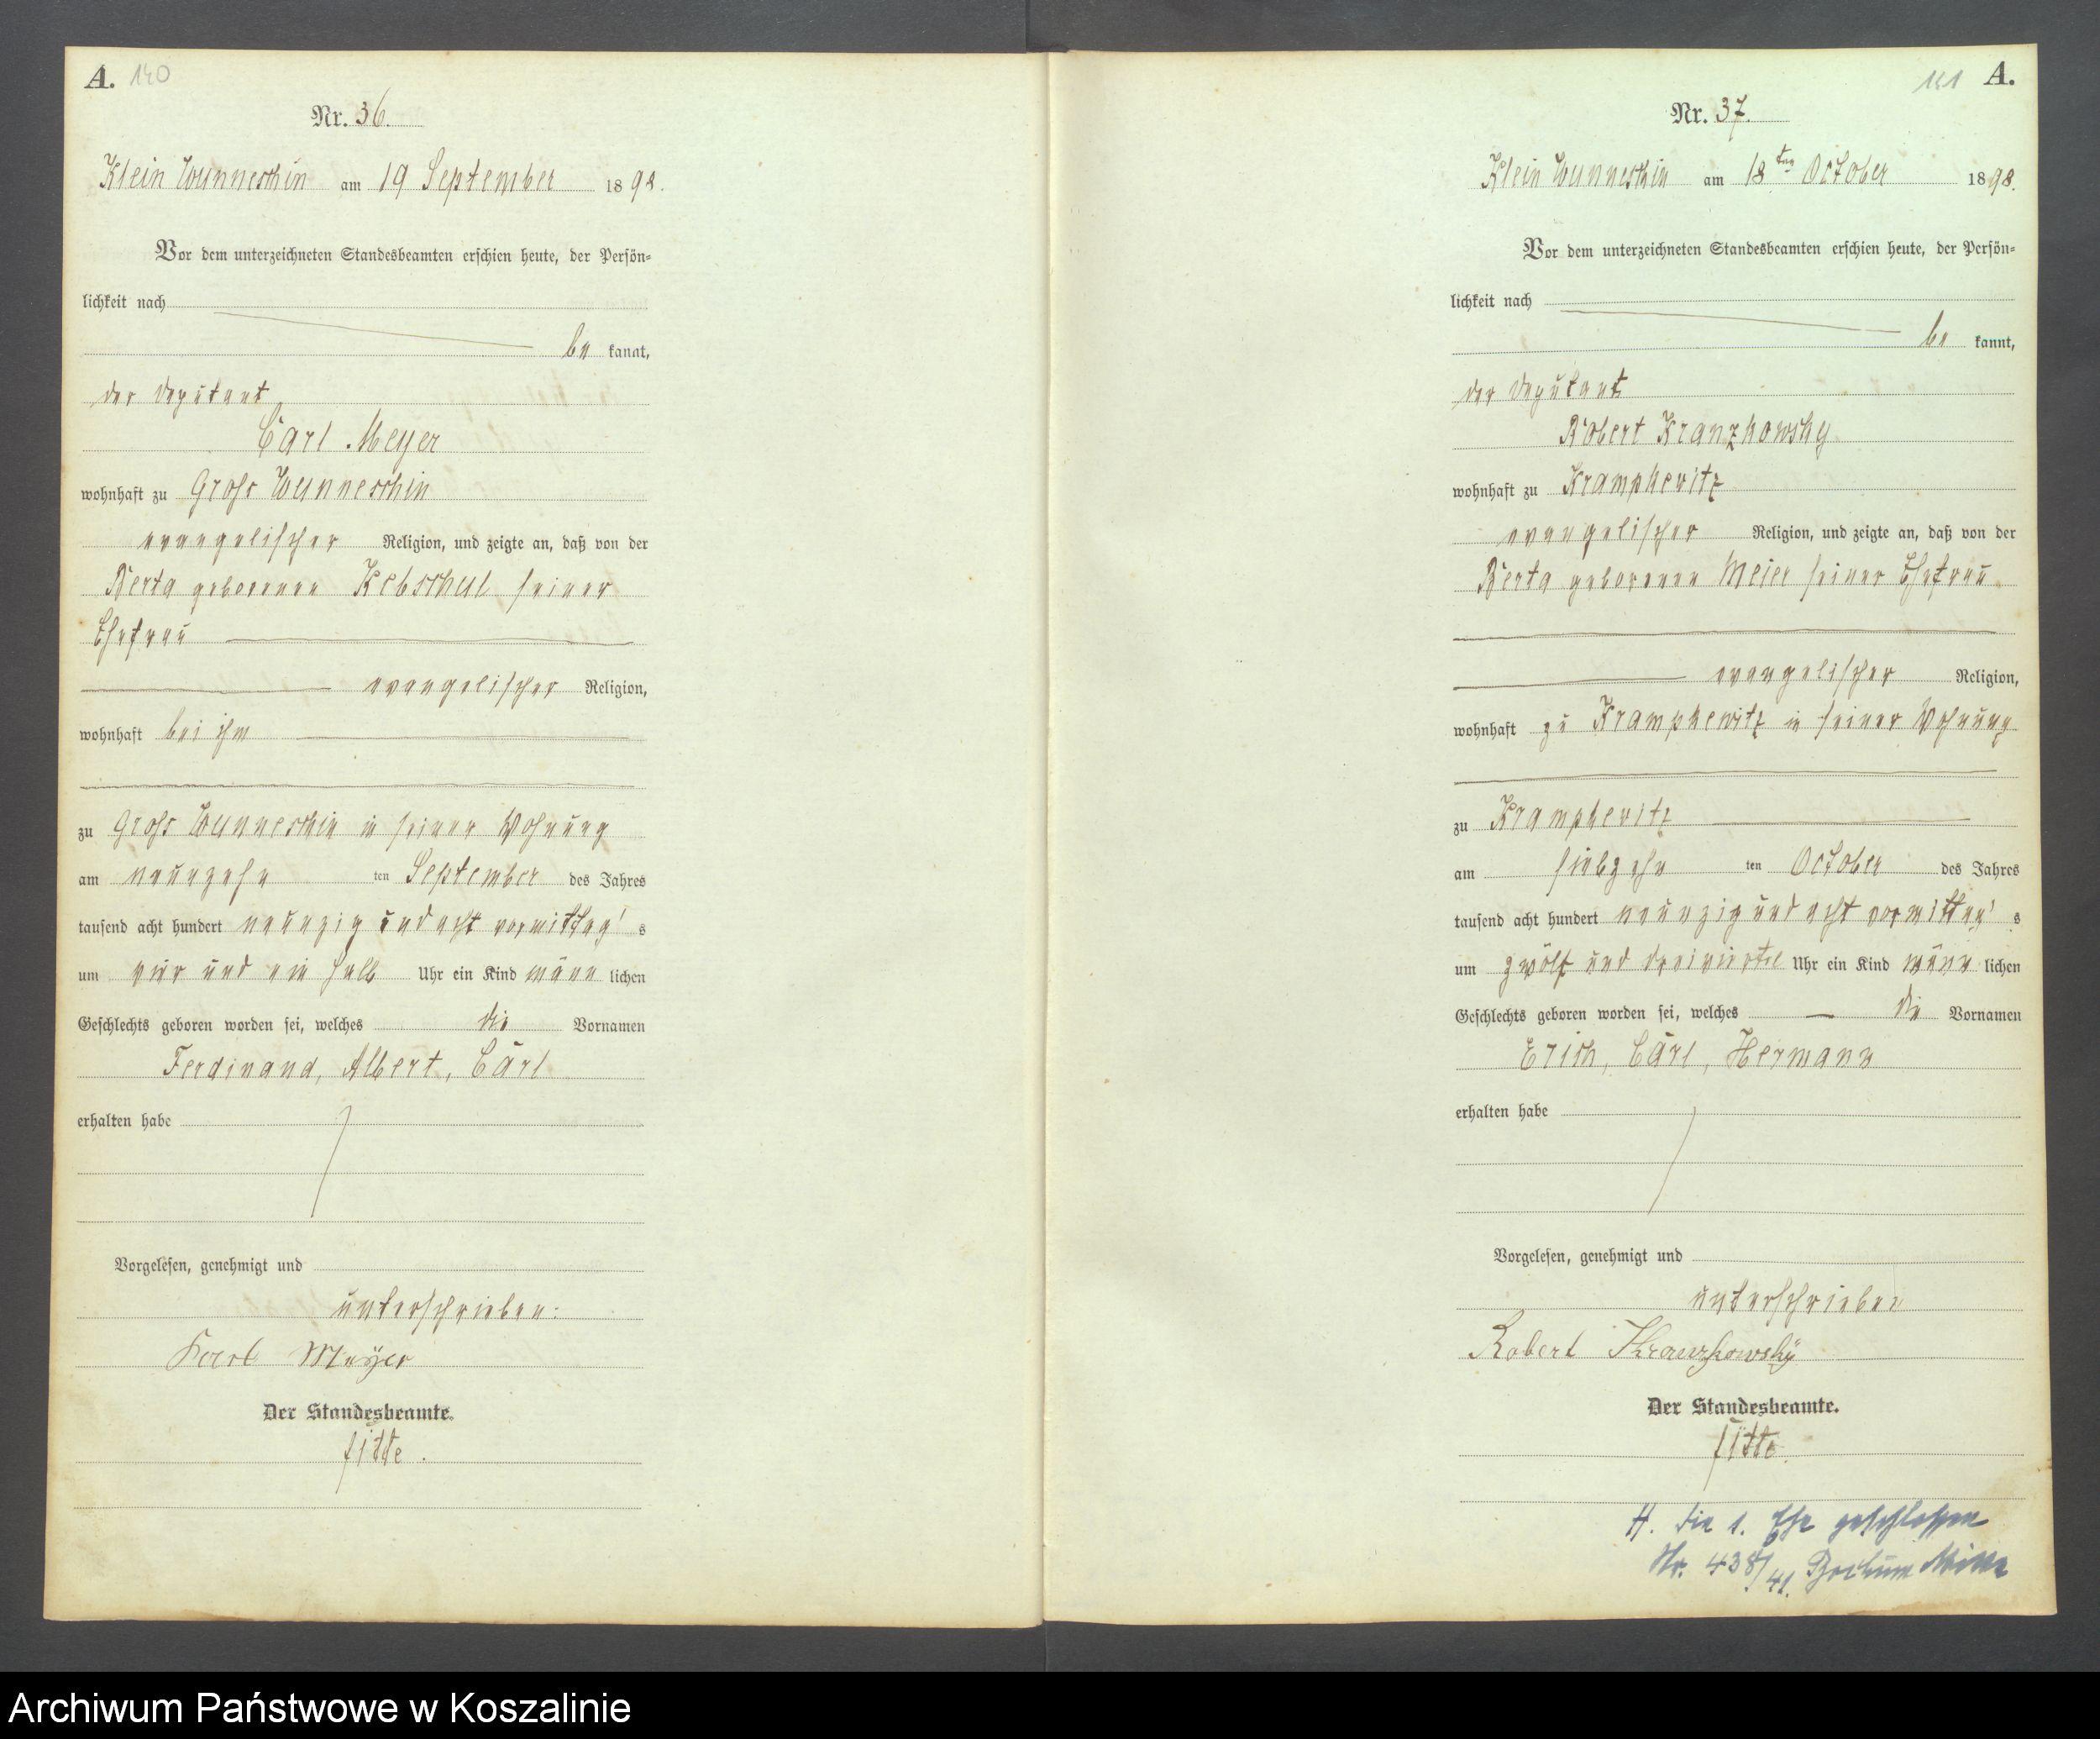 A. 140
Nr. 36.
Klein Wunneschin am 19 September 1898.
Vor dem unterzeichneten Standesbeamten erschien heute, der Persön-
lichkeit nach
be kannt,
der Deputant
Carl Meyer
wohnhaft zu Gross Wunneschin
evangelischer Religion, und zeigte an, daß von der
Berta geborenen Kebschul seiner
Ehefrau
evangelischer Religion,
wohnhaft bei ihm
zu Gross Wunneschin in seiner Wohnung
am neunzehn ten September des Jahres
tausend acht hundert neunzig und acht vormittag's
um vier und ein halb Uhr ein Kind männ lichen
Geschlechts geboren worden sei, welches die Vornamen
Ferdinand, Albert, Carl
erhalten habe
Vorgelesen, genehmigt und
unterschrieben:
Karl Meyer
Der Standesbeamte.
A. 141
Nr. 37.
Klein Wunneschin am 18ten October 1898.
Vor dem unterzeichneten Standesbeamten erschien heute, der Persön-
lichkeit nach
be kannt,
der Deputant
Robert Kranzkowsky
wohnhaft zu Krampkewitz
evangelischer Religion, und zeigte an, daß von der
Berta geborenen Meier seiner Ehefrau
evangelischer Religion,
wohnhaft zu Krampkewitz in seiner Wohnung
zu Krampkewitz
am siebzehn ten October des Jahres
tausend acht hundert neunzig und acht vormittag's
um zwölf und dreiviertel Uhr ein Kind männ lichen
Geschlechts geboren worden sei, welches die Vornamen
Erich, Carl, Hermann
erhalten habe
Vorgelesen, genehmigt und
unterschrieben
Robert Kranzkowsky
Der Standesbeamte.
H. die 1. Ehe geschlossen
Nr. 438/41. Bochum Mitte
Archiwum Państwowe w Koszalinie